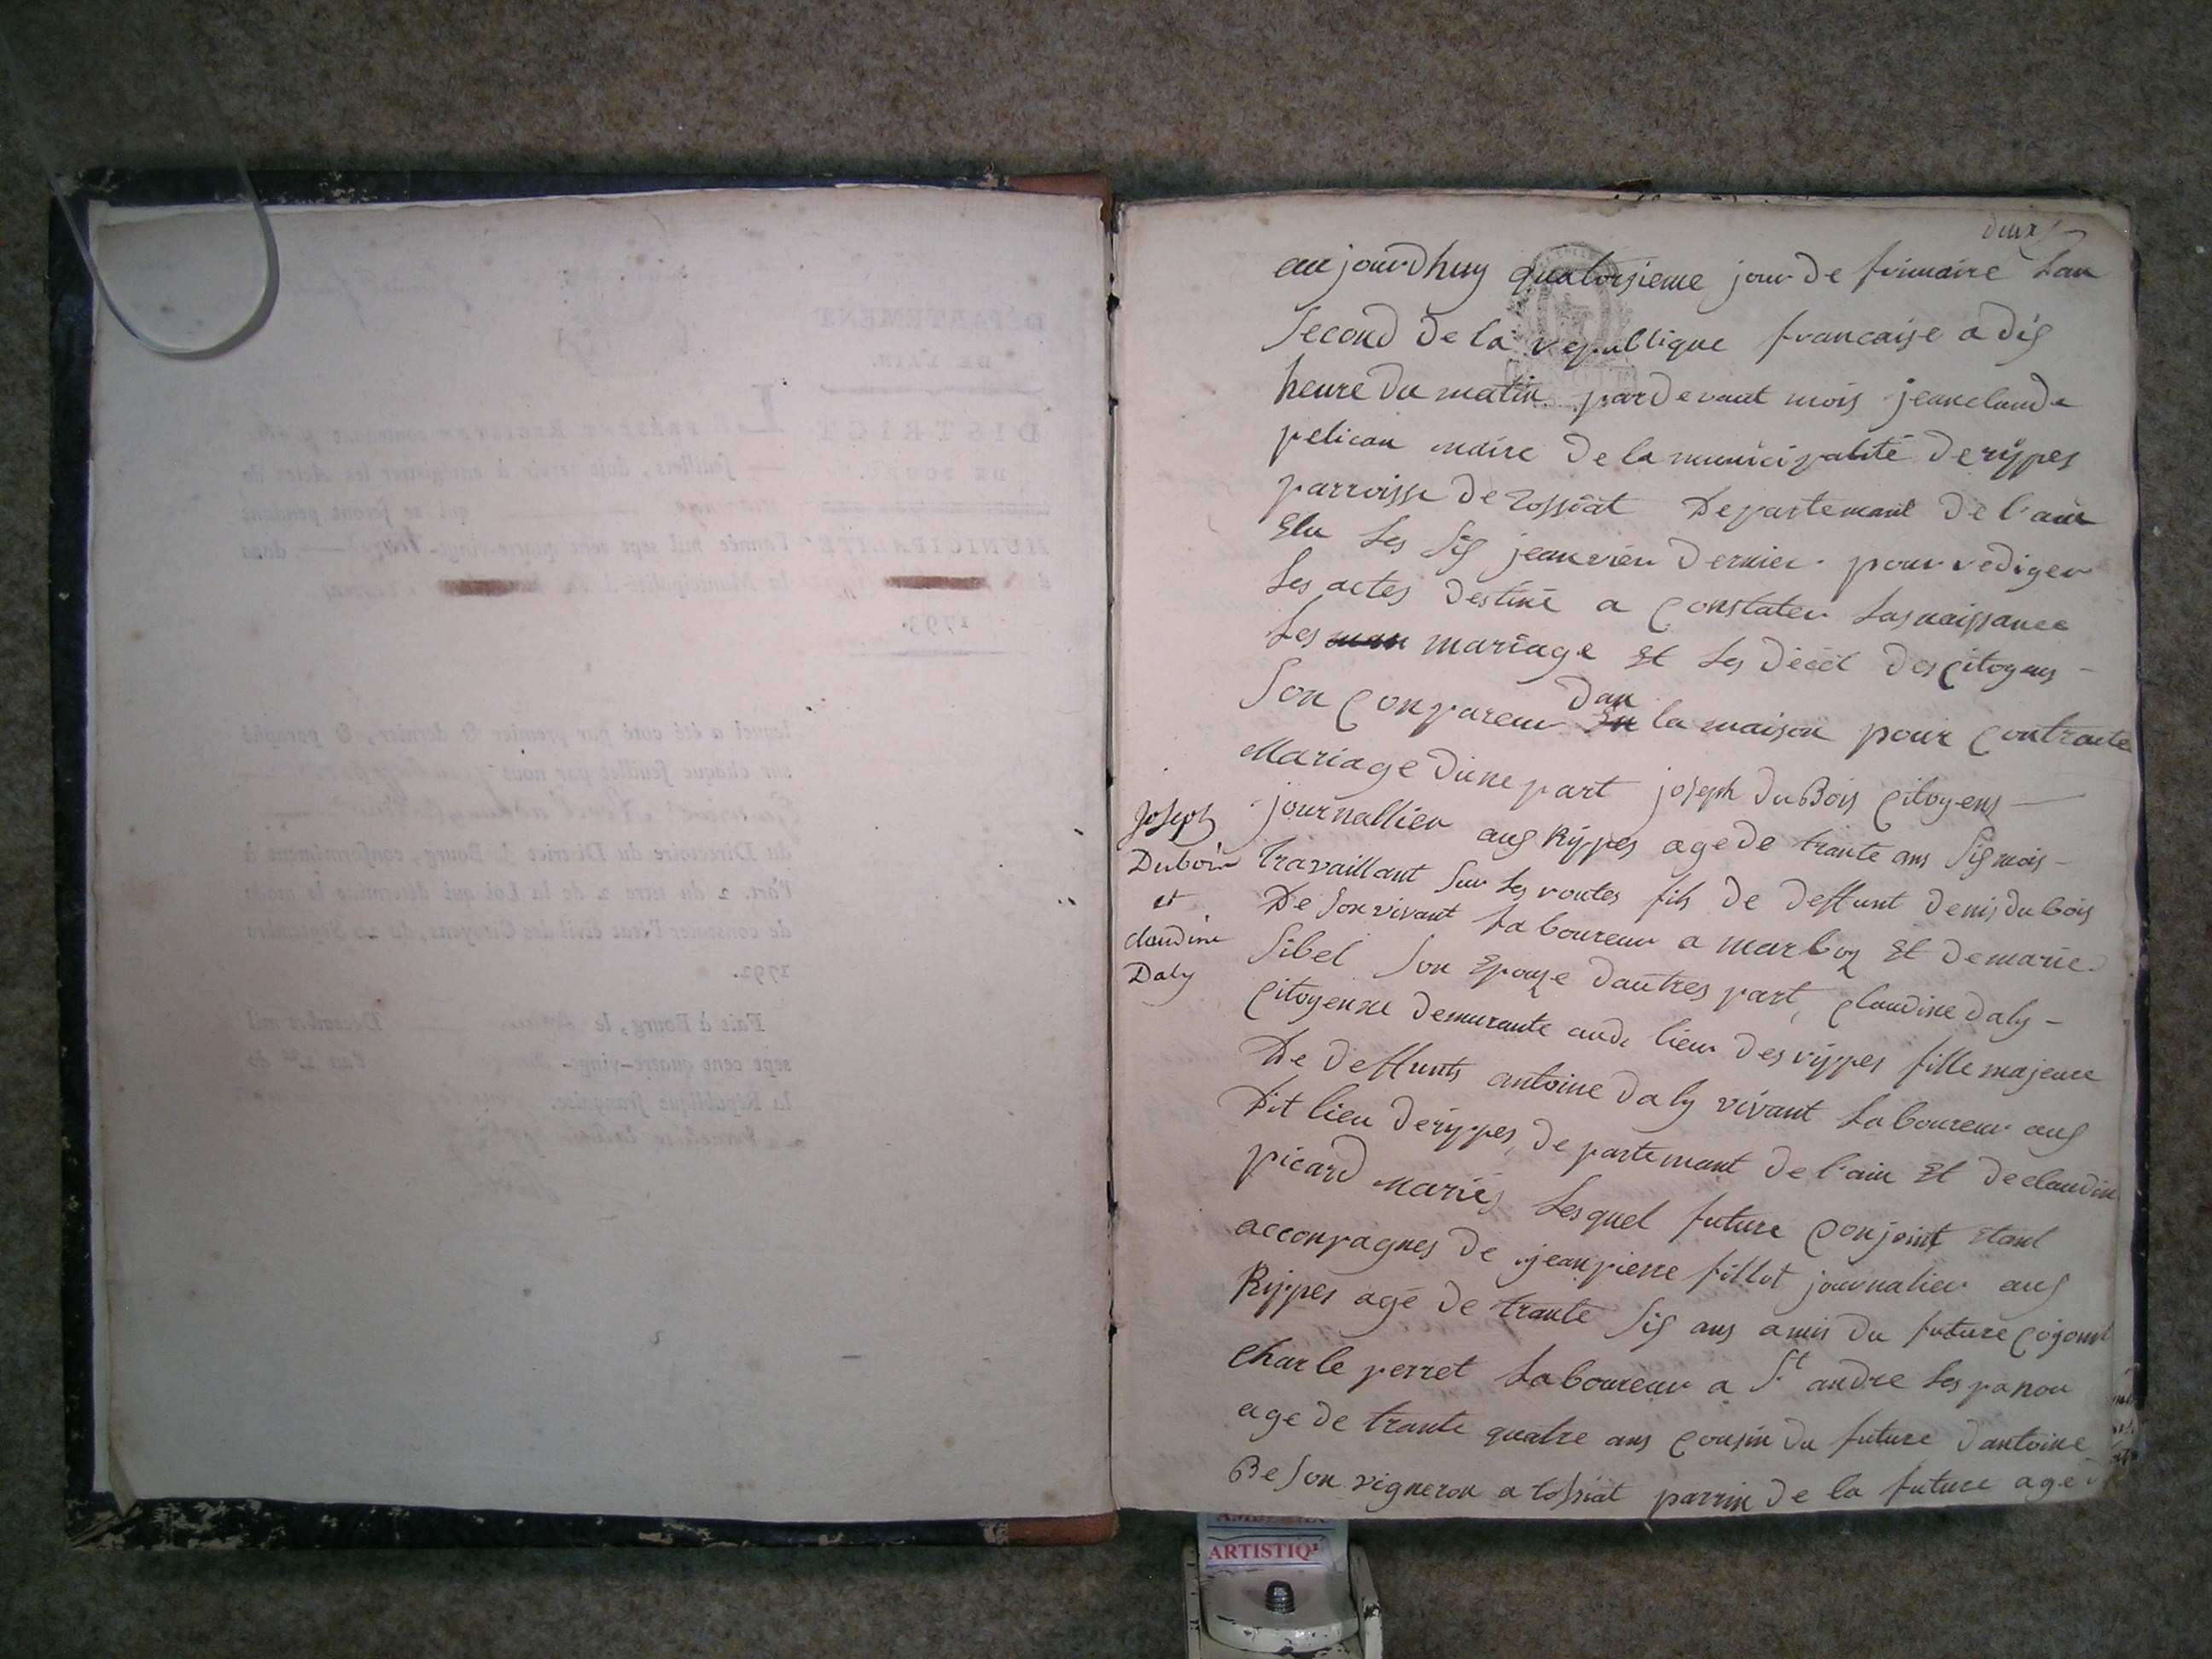 deux
aujourdhuy quatorsieme jour de frimaire Lan
Second de la republique francaise a dis
heure du matin pardevant mois jeanclaude
pelican maire de la municipalité derippes
parroisse de Tossiat Departemant de l'ain
Elu Les Sis janvier dernier pour rediger
Les actes destiné a Constater Lasnaissance
Les mariage Et Les décèt des Citoyens
Son Conpareu dan la maison pour Contracte
Mariage d'une part joseph duBois Citoyens
journallier aus Rippes age de trante ans Sis mois
Travaillant Sur Les routes fils de deffunt denis dubois
De Son vivant Laboureur a marboz Et de marie
Sibel Son Epouze d'autres part, Claudine daly
Citoyenne demurante aud. lieu des rippes fille majeure
De deffunts antoine daly vivant Laboureur aus
Dit lieu derippes, departemant de l'ain Et declaudine
picard mariés Lesquel future Conjoint Etant
acconpagnes de jeanpierre fillot journalier aus
Rippes agé de trante Sis ans amis du future Cojoint
Charle perret Laboureur a St andre Les panou
age de trante quatre ans Cousin du future d'antoine
BeSon vigneron a tossiat parrin de la future age
Joseph
Dubois
et
claudine
Daly
DÉPARTEMENT
DE L'AIN.
DISTRICT
DE BOURG.
MUNICIPALITÉ
1793.
LE PRÉSENT REGISTRE contenant
feuillets, doit servir à enregistrer les Actes de
qui se feront pendant
l'année mil sept cent quatre-vingt- dans
la Municipalité d
lequel a été coté par premier & dernier, & paraphé
sur chaque feuillet par nous
du Directoire du District de Bourg, conformément à
l'art. 2 du titre 2 de la Loi qui détermine le mode
de constater l'état civil des Citoyens, du 20 Septembre
1792.
Fait à Bourg, le Décembre mil
sept cent quatre-vingt- l'an de
la République françoise.
ARTISTIQ